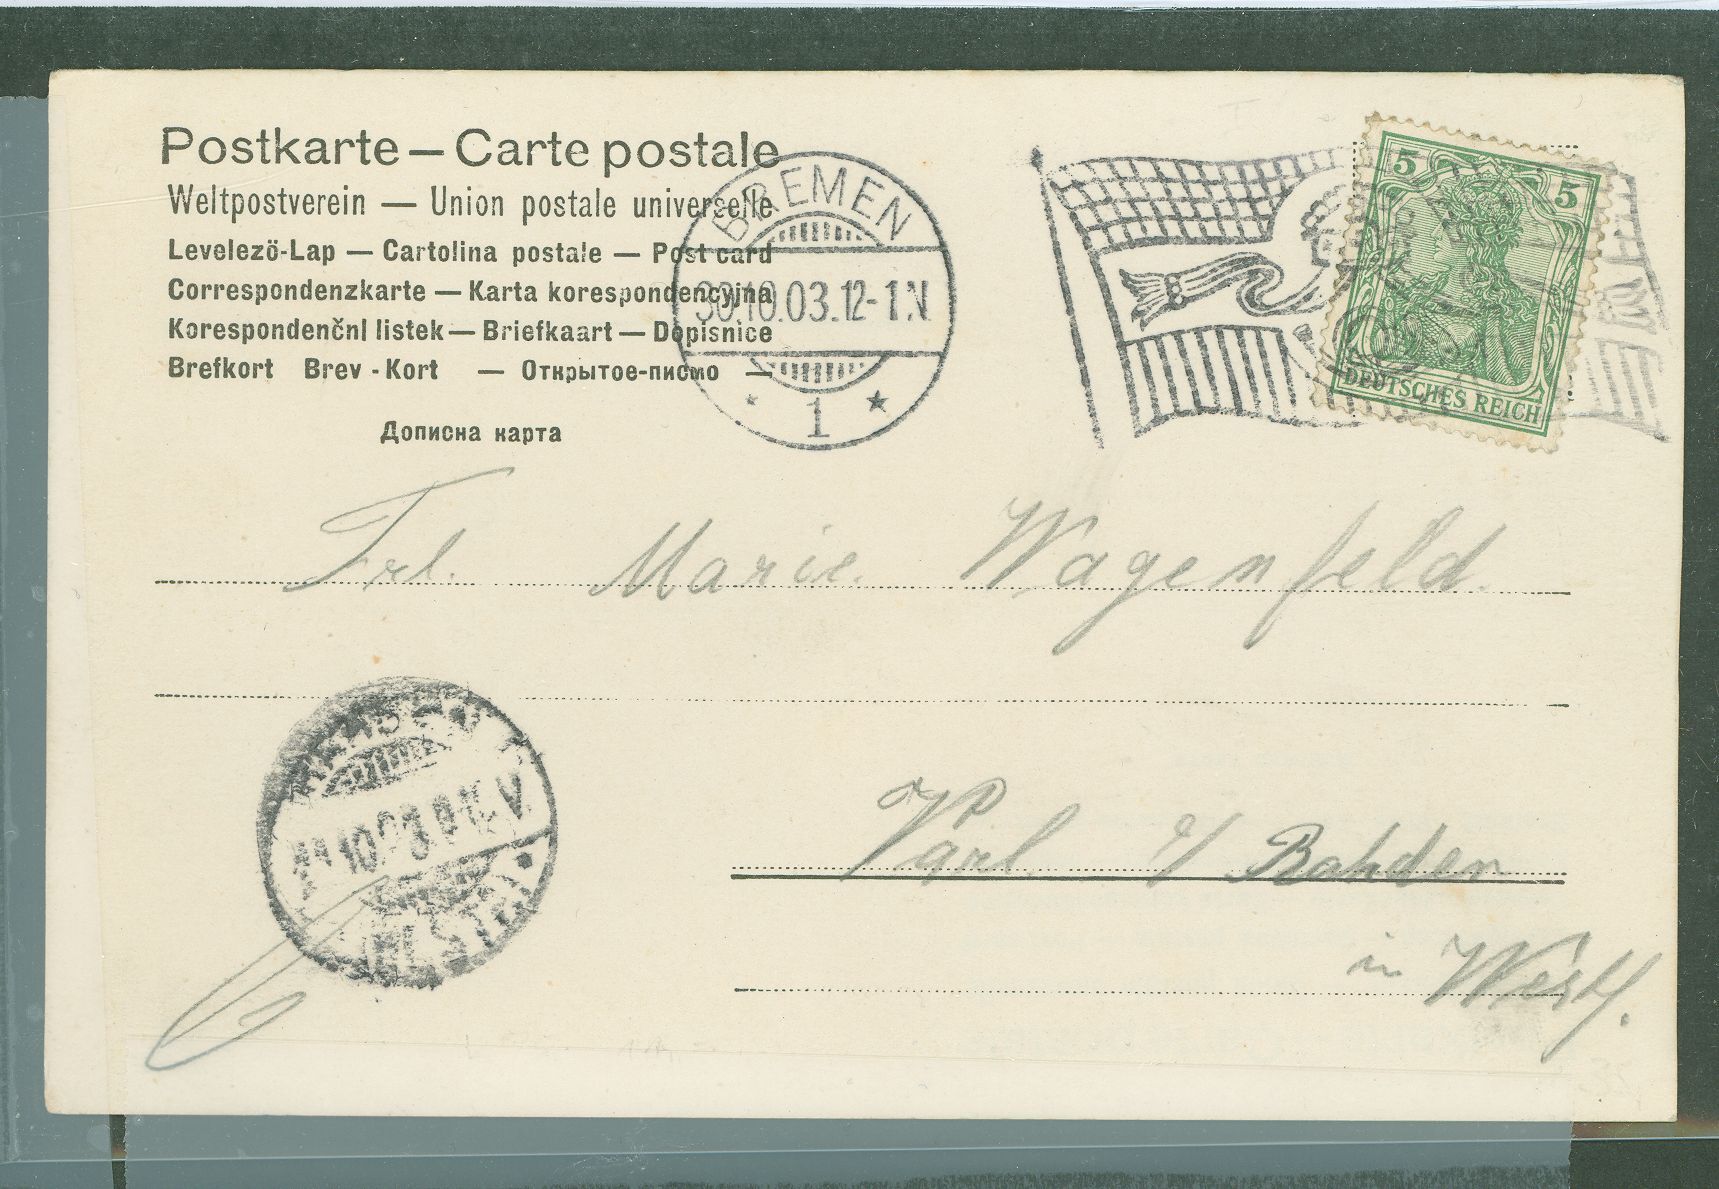 Postkarte – Carte postale
Weltpostverein — Union postale universelle
Levelezö-Lap — Cartolina postale — Post card
Correspondenzkarte — Karta korespondencyjna
Korespondenčnl listek — Briefkaart — Dopisnice
Brefkort Brev - Kort — Открытое-письмо —
Дописна карта
BREMEN
30.10.03.12-1N
* 1 *
5 5
DEUTSCHES REICH
Frl. Marie Wagenfeld.
Varl Rahden
in Westf.